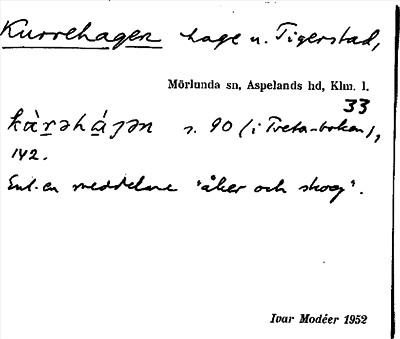 Kurrehagen hage u. Tigerstad,
Mörlunda sn, Aspelands hd, Klm. l.
33
kàrəháɡən s. 90 (i Treta-boken),
142.
Enl. en meddelare "åker och skog".
Ivar Modéer 1952